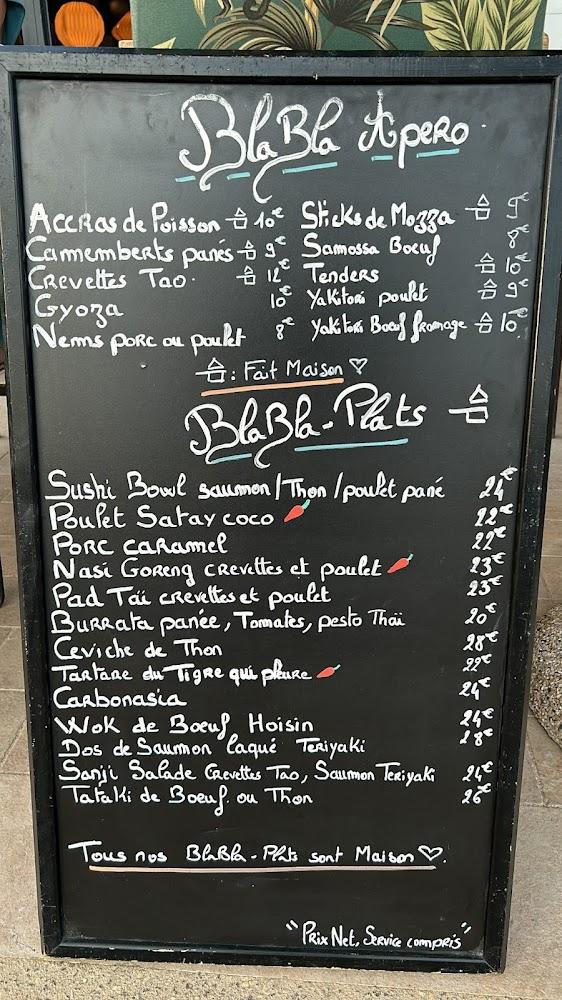 BlaBla Apero
Accras de Poisson 10€
Camemberts panés 9€
Crevettes Tao 12€
Gyoza 10€
Nems porc ou poulet 8€
Sticks de Mozza 9€
Samossa Boeuf 8€
Tenders 10€
Yakitori poulet 9€
Yakitori Boeuf fromage 10€
: Fait Maison ♡
BlaBla-Plats
Sushi Bowl saumon/Thon/poulet pané 24€
Poulet Satay coco 22€
Porc caramel 22€
Nasi Goreng crevettes et poulet 23€
Pad Taï crevettes et poulet 23€
Burrata panée, Tomates, pesto Thaï 20€
Ceviche de Thon 28€
Tartare du Tigre qui pleure 22€
Carbonasia 24€
Wok de Boeuf Hoisin 24€
Dos de Saumon laqué Teriyaki 28€
Sanji Salade Crevettes Tao, Saumon Teriyaki 24€
Tataki de Boeuf ou Thon 26€
Tous nos BlaBla-Plats sont Maison ♡.
"Prix Net, Service compris"